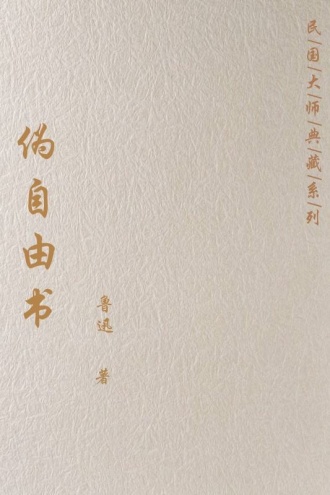 民|国|大|师|典|藏|系|列
伪自由书
鲁迅 著